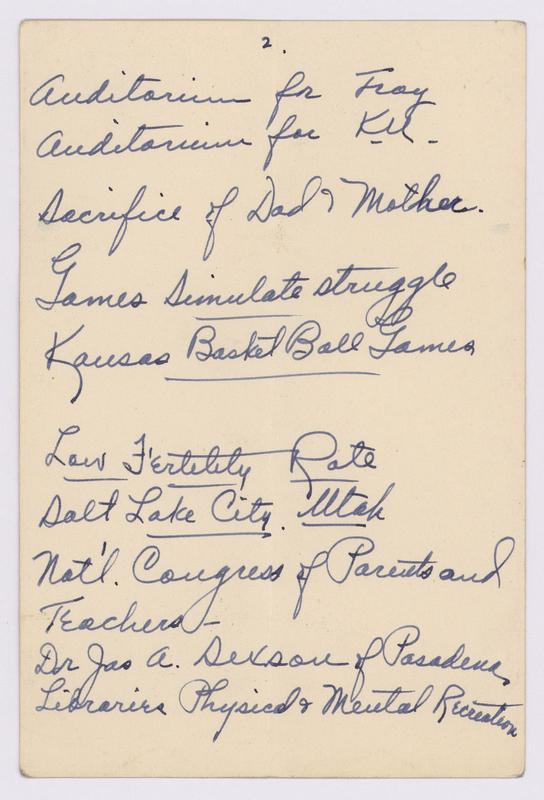 2.
Auditorium for Troy
Auditorium for K.U.
Sacrifice of Dad & Mother.
Games Simulate struggle
Kansas Basket Ball Games
Low Fertility Rate
Salt Lake City. Utah
Nat'l. Congress of Parents and
Teachers -
Dr Jas A. Dexson of Pasadena,
Libraries Physical & Mental Recreation